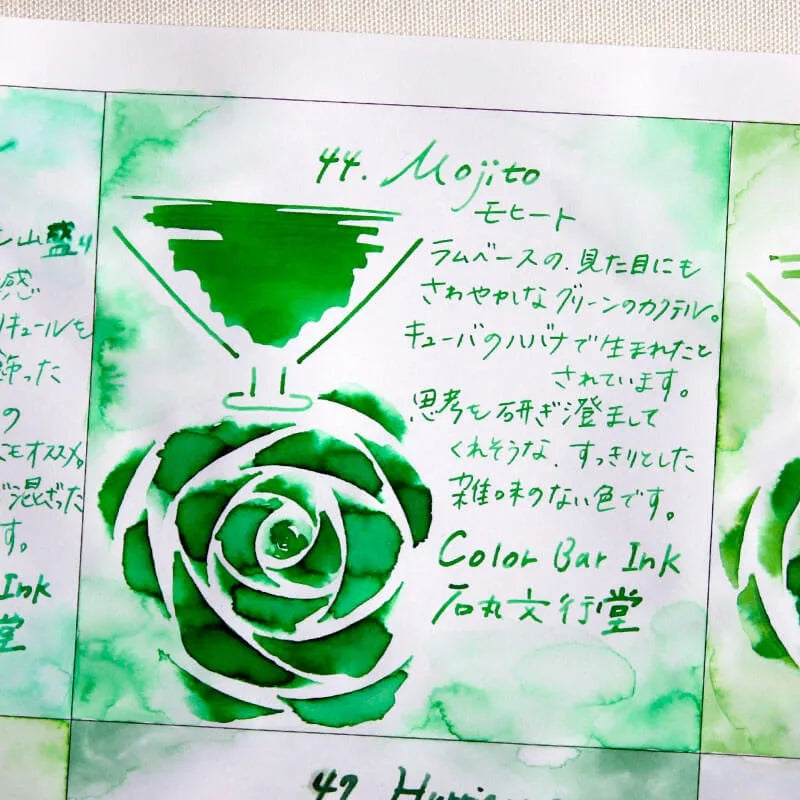 44. Mojito
モヒート
ラムベースの、見た目にも
さわやかなグリーンのカクテル。
キューバのハバナで生まれたと
されています。
思考を研ぎ澄まして
くれそうな、すっきりとした
雑味のない色です。
Color Bar Ink
石丸文行堂
山盛り
感
キュールを
飾った
の
もオススメ。
混ざった
す。
Ink
堂
47